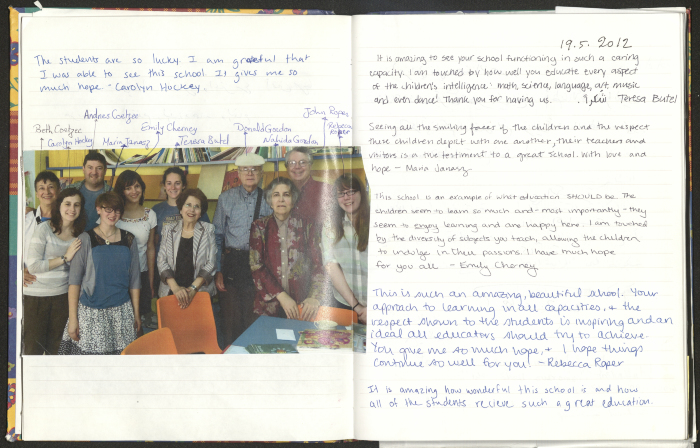 The students are so lucky. I am grateful that
I was able to see this school. It gives me so
much hope - Carolyn Hockey
Andres Coetzee
John Roper
Beth Coetzee
Emily Cherney
Donald Gordon
Rebecca
Roper
Carolyn Hockey
Maria Janasz
Teresa Butel
Nahida Gordon
19.5.2012
It is amazing to see your school functioning in such a caring
capacity. I am touched by how well you educate every aspect
of the children's intelligence: math, science, language, art, music
and even dance! Thank you for having us. Teresa Butel
Seeing all the smiling faces of the children and the respect
these children depict with one another, their teachers and
visitors is a true testiment to a great school. With love and
hope - Maria Janasz
This school is an example of what education SHOULD be. The
children seem to learn so much and - most importantly - they
seem to enjoy learning and are happy here. I am touched
by the diversity of subjects you teach, allowing the children
to indulge in their passions. I have much hope
for you all. - Emily Cherney
This is such an amazing, beautiful school. Your
approach to learning in all capacities, + the
respect shown to the students is inspiring and an
ideal all educators should try to achieve.
You give me so much hope, + I hope things
continue so well for you! - Rebecca Roper
It is amazing how wonderful this school is and how
all of the students relieve such a great education.